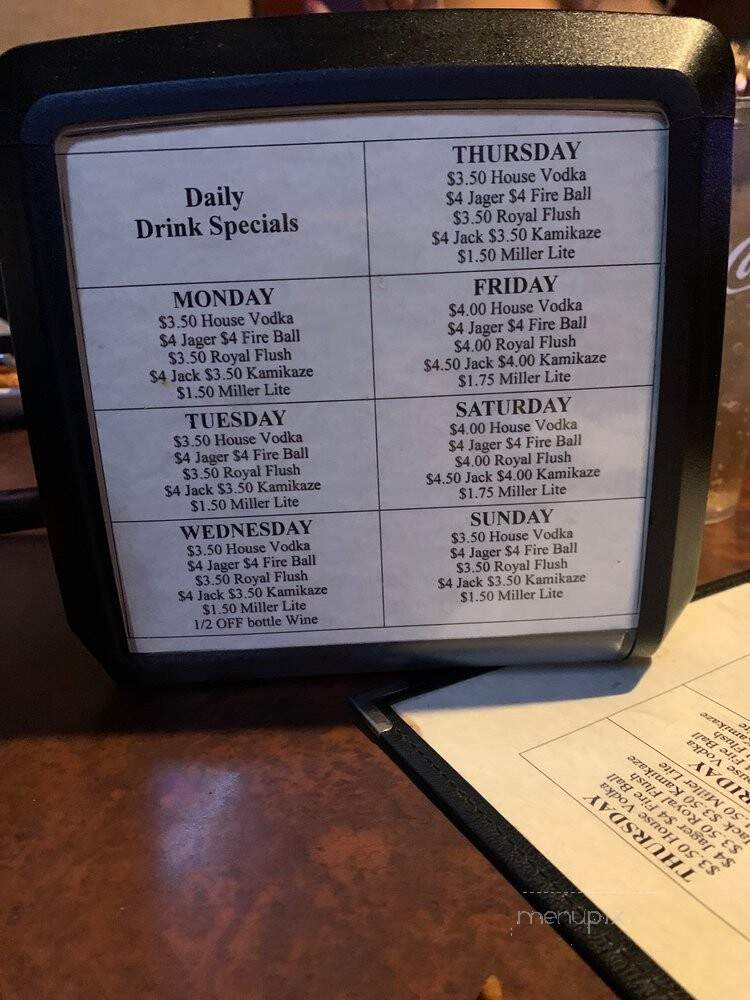 Daily
Drink Specials
MONDAY
$3.50 House Vodka
$4 Jager $4 Fire Ball
$3.50 Royal Flush
$4 Jack $3.50 Kamikaze
$1.50 Miller Lite
TUESDAY
$3.50 House Vodka
$4 Jager $4 Fire Ball
$3.50 Royal Flush
$4 Jack $3.50 Kamikaze
$1.50 Miller Lite
WEDNESDAY
$3.50 House Vodka
$4 Jager $4 Fire Ball
$3.50 Royal Flush
$4 Jack $3.50 Kamikaze
$1.50 Miller Lite
1/2 OFF bottle Wine
THURSDAY
$3.50 House Vodka
$4 Jager $4 Fire Ball
$3.50 Royal Flush
$4 Jack $3.50 Kamikaze
$1.50 Miller Lite
FRIDAY
$4.00 House Vodka
$4 Jager $4 Fire Ball
$4.00 Royal Flush
$4.50 Jack $4.00 Kamikaze
$1.75 Miller Lite
SATURDAY
$4.00 House Vodka
$4 Jager $4 Fire Ball
$4.00 Royal Flush
$4.50 Jack $4.00 Kamikaze
$1.75 Miller Lite
SUNDAY
$3.50 House Vodka
$4 Jager $4 Fire Ball
$3.50 Royal Flush
$4 Jack $3.50 Kamikaze
$1.50 Miller Lite
THURSDAY
$3.50 House Vodka
$4 Jager $4 Fire Ball
$3.50 Royal Flush
Jack $3.50 Kamikaze
.50 Miller Lite
RIDAY
Vodka
Fire Ball
Flush
Kamikaze
menupix